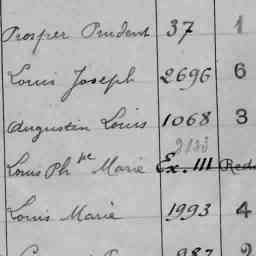 Prosper Prudent 37 1
Louis Joseph 2696 6
Augustin Louis 1068 3
Louis Phpe Marie Ex. III
Louis Marie 1993 4
987 2